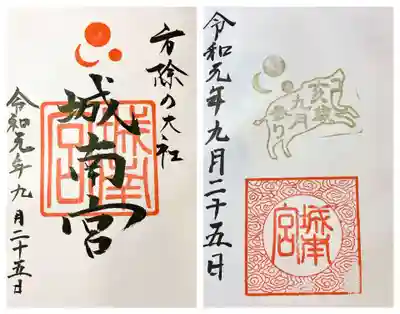 方除の大社
城南宮
城南宮
令和元年九月二十五日
令和元年九月二十五日
亥歳
九月
参り
城南宮